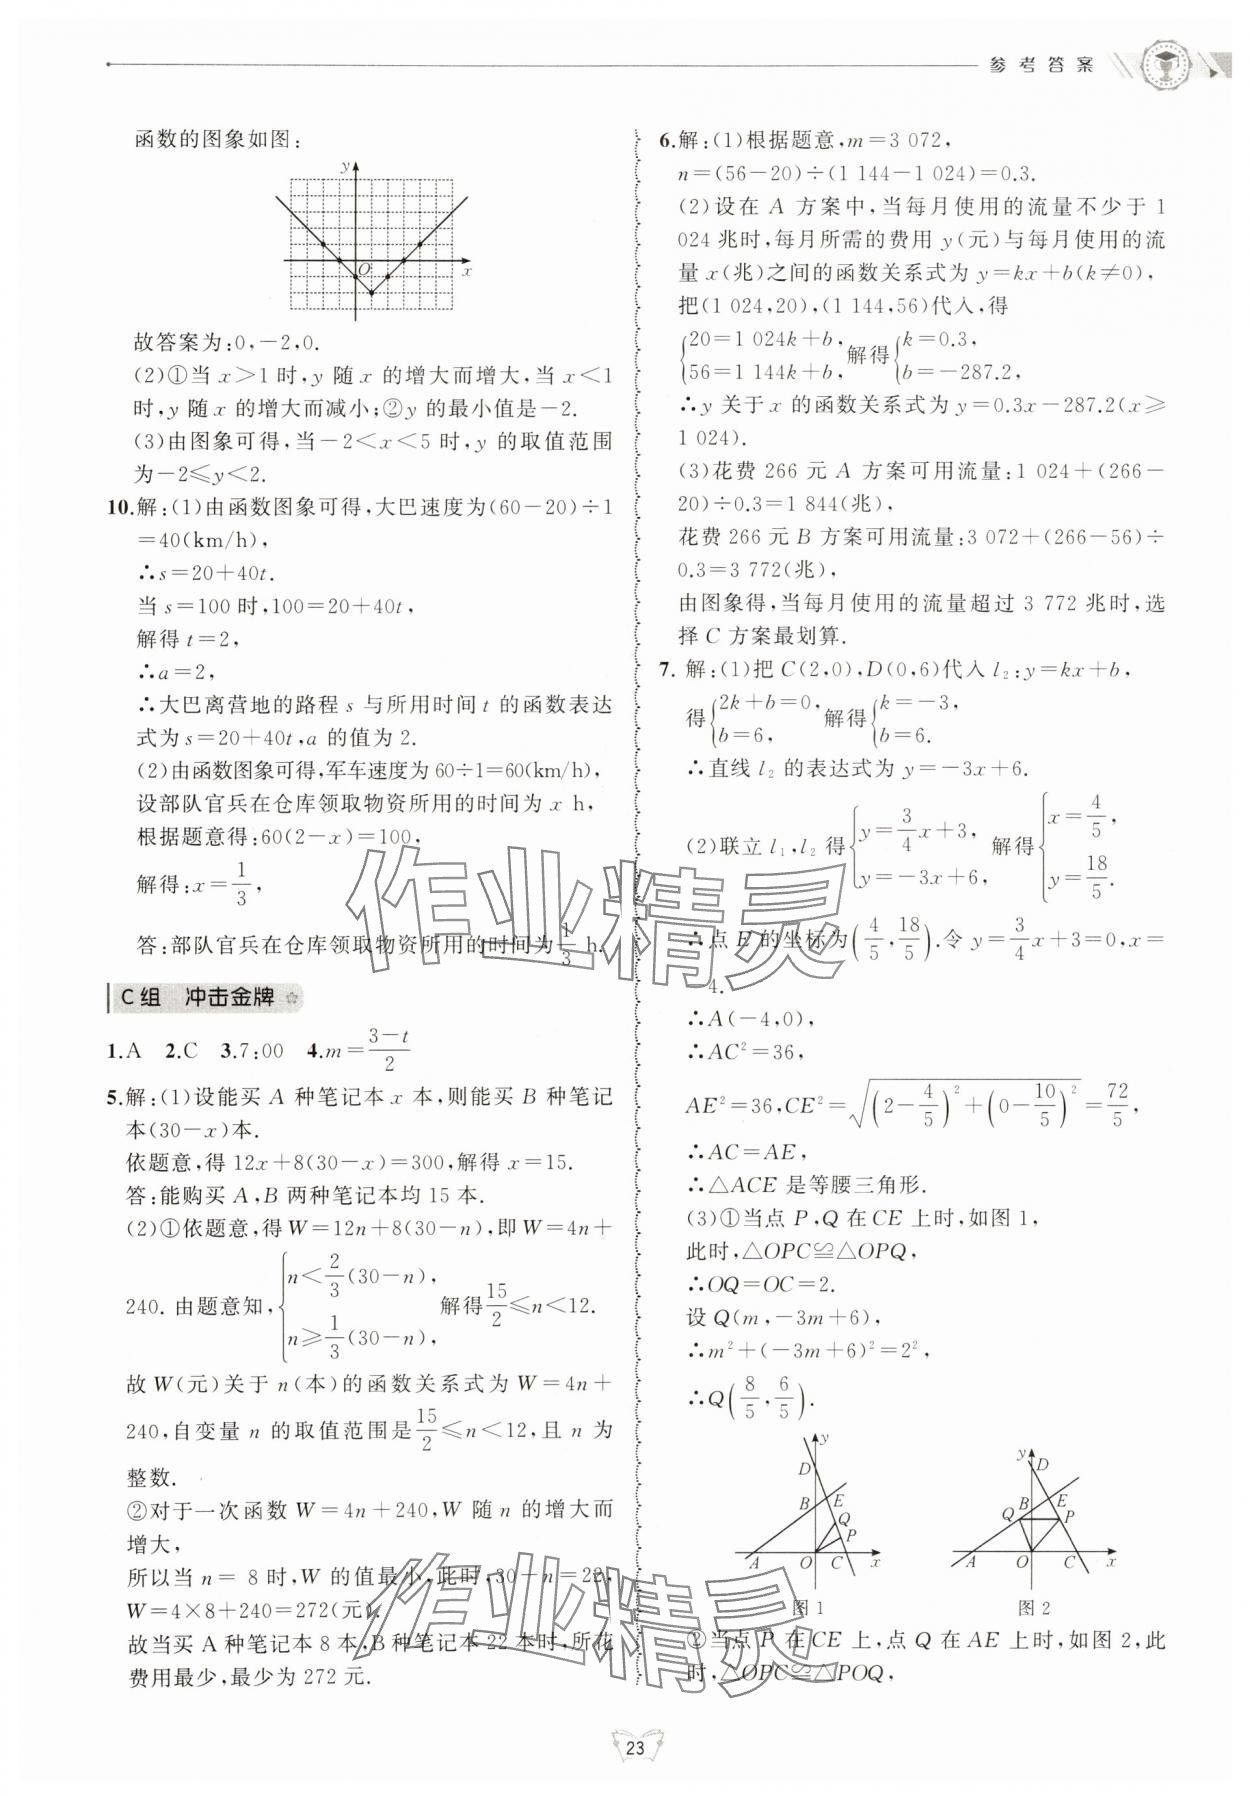 参考答案
函数的图象如图:
y
O
x
故答案为:0,-2,0.
(2)①当 x>1 时,y 随 x 的增大而增大,当 x<1
时,y 随 x 的增大而减小;②y 的最小值是-2.
(3)由图象可得,当-2<x<5 时,y 的取值范围
为-2≤y<2.
10.解:(1)由函数图象可得,大巴速度为(60-20)÷1
=40(km/h),
∴s=20+40t.
当 s=100 时,100=20+40t,
解得 t=2,
∴a=2,
∴大巴离营地的路程 s 与所用时间 t 的函数表达
式为 s=20+40t,a 的值为 2.
(2)由函数图象可得,军车速度为 60÷1=60(km/h),
设部队官兵在仓库领取物资所用的时间为 x h,
根据题意得:60(2-x)=100,
解得:x=1/3,
答:部队官兵在仓库领取物资所用的时间为 1/3 h.
C组 冲击金牌
1.A 2.C 3.7:00 4.m=(3-t)/2
5.解:(1)设能买 A 种笔记本 x 本,则能买 B 种笔记
本(30-x)本.
依题意,得 12x+8(30-x)=300,解得 x=15.
答:能购买 A,B 两种笔记本均 15 本.
(2)①依题意,得 W=12n+8(30-n),即 W=4n+
240. 由题意知, { n<2/3(30-n), n≥1/3(30-n), 解得 15/2≤n<12.
故 W(元)关于 n(本)的函数关系式为 W=4n+
240,自变量 n 的取值范围是 15/2≤n<12,且 n 为
整数.
②对于一次函数 W=4n+240,W 随 n 的增大而
增大,
所以当 n= 8 时,W 的值最小,此时,30-n=22,
W=4×8+240=272(元).
故当买 A 种笔记本 8 本,B 种笔记本 22 本时,所花
费用最少,最少为 272 元.
6.解:(1)根据题意,m=3 072,
n=(56-20)÷(1 144-1 024)=0.3.
(2)设在 A 方案中,当每月使用的流量不少于 1
024 兆时,每月所需的费用 y(元)与每月使用的流
量 x(兆)之间的函数关系式为 y=kx+b(k≠0),
把(1 024,20),(1 144,56)代入,得
{ 20=1 024k+b, 56=1 144k+b, 解得 { k=0.3, b=-287.2,
∴y 关于 x 的函数关系式为 y=0.3x-287.2(x≥
1 024).
(3)花费 266 元 A 方案可用流量:1 024+(266-
20)÷0.3=1 844(兆),
花费 266 元 B 方案可用流量:3 072+(266-56)÷
0.3=3 772(兆),
由图象得,当每月使用的流量超过 3 772 兆时,选
择 C 方案最划算.
7. 解:(1)把 C(2,0),D(0,6)代入 l₂:y=kx+b,
得 { 2k+b=0, b=6, 解得 { k=-3, b=6.
∴直线 l₂ 的表达式为 y=-3x+6.
(2)联立 l₁,l₂ 得 { y=3/4x+3, y=-3x+6, 解得 { x=4/5, y=18/5.
∴点 E 的坐标为(4/5,18/5),令 y=3/4x+3=0,x=
4.
∴A(-4,0),
∴AC²=36,
AE²=36,CE²=√((2-4/5)²+(0-10/5)²)=72/5,
∴AC=AE,
∴△ACE 是等腰三角形.
(3)①当点 P,Q 在 CE 上时,如图 1,
此时,△OPC≌△OPQ,
∴OQ=OC=2.
设 Q(m,-3m+6),
∴m²+(-3m+6)²=2²,
∴Q(8/5,6/5).
y
D
B
E
Q
P
A
O
C
x
图 1
y
D
B
E
Q
P
A
O
C
x
图 2
②当点 P 在 CE 上,点 Q 在 AE 上时,如图 2,此
时,△OPC≌△POQ,
作业精灵
作业精灵
23